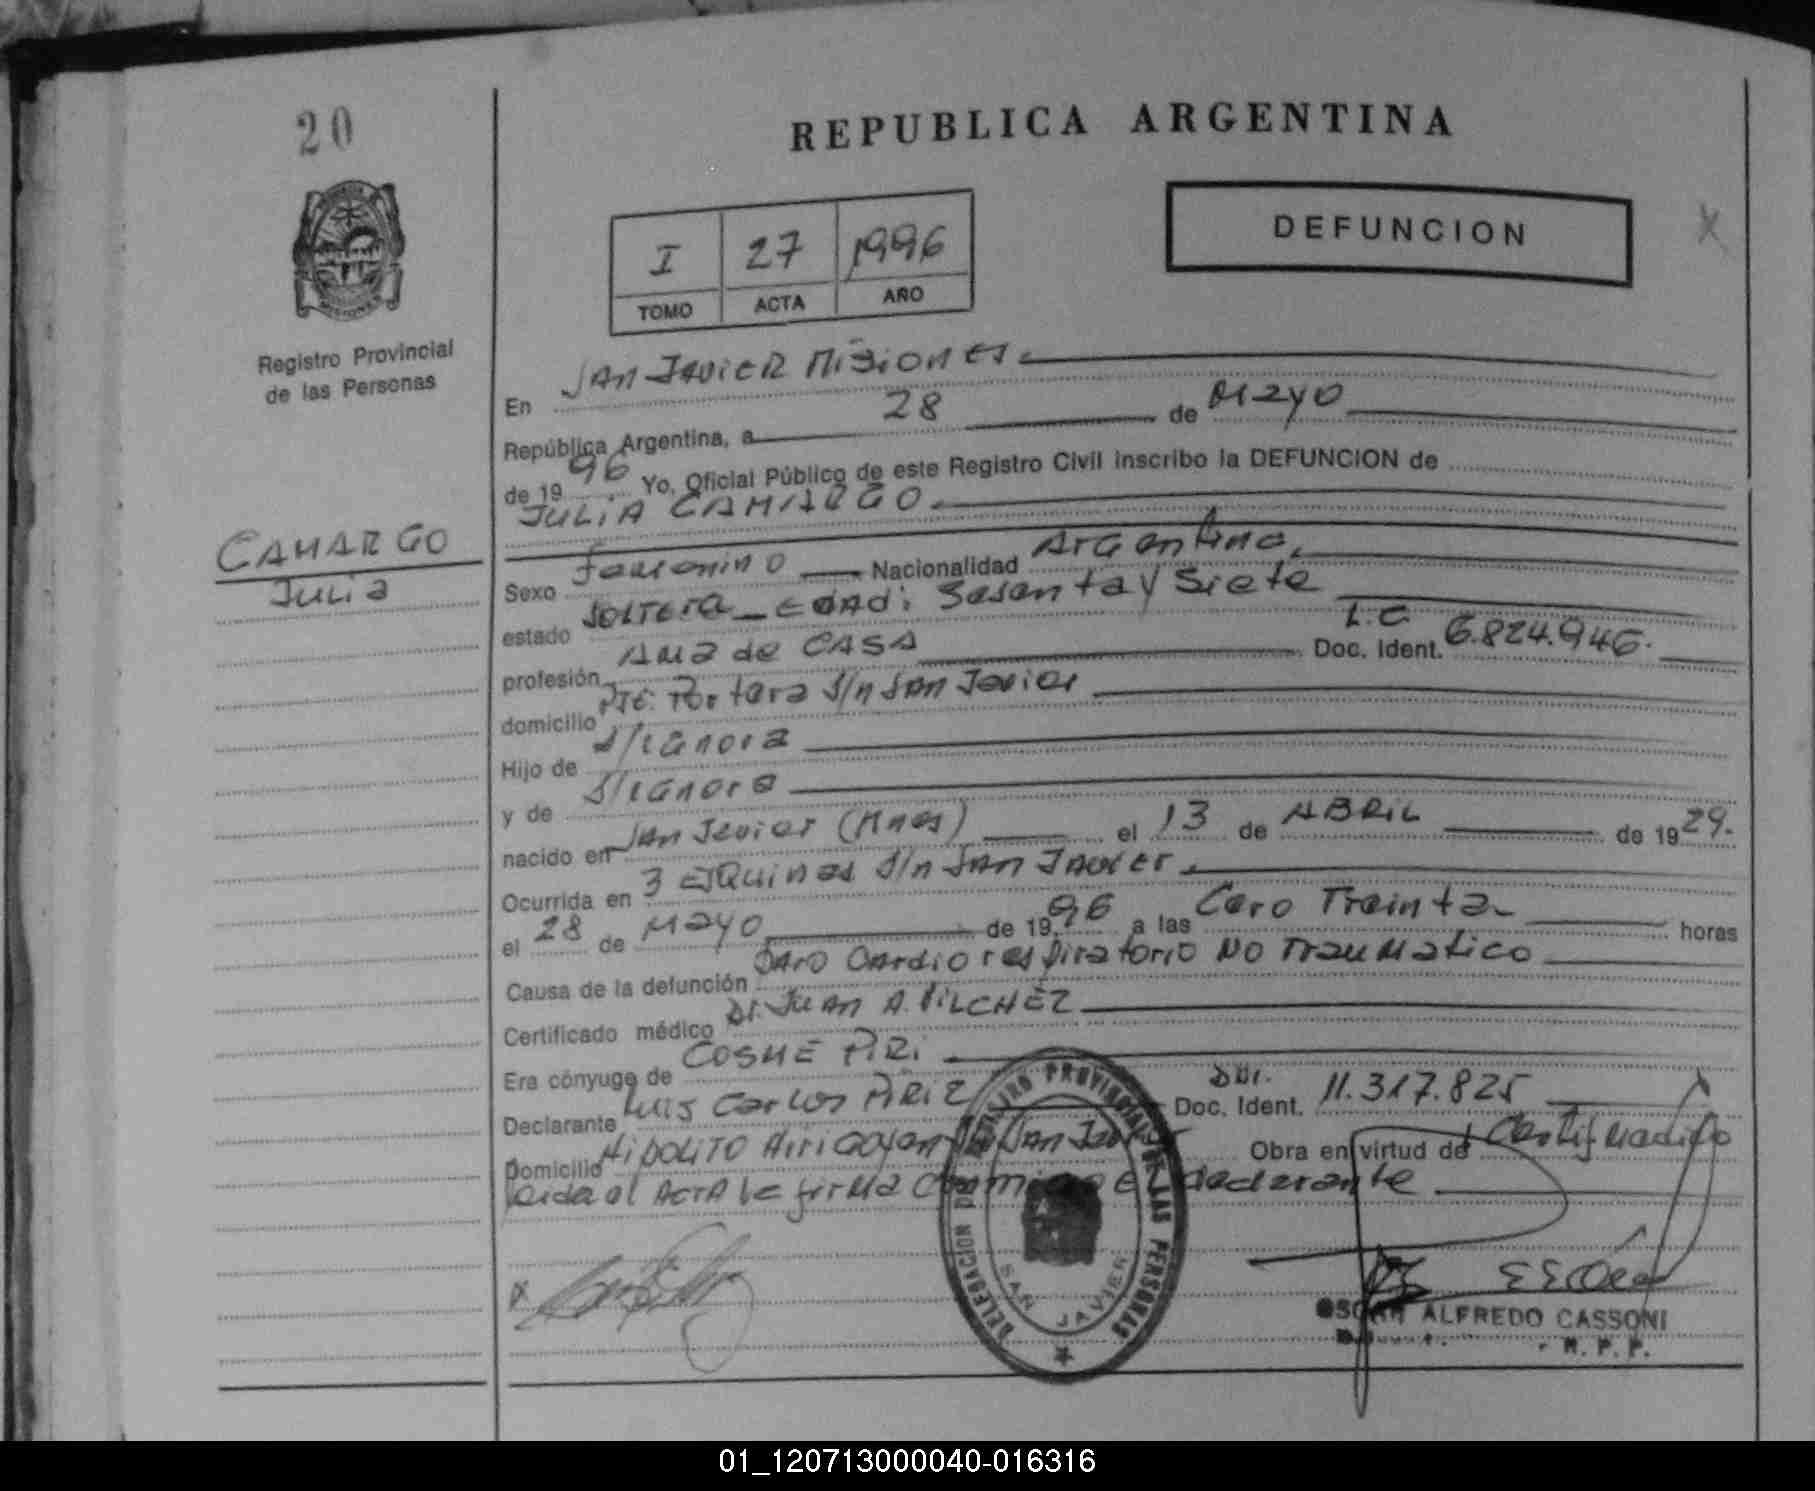 20
REPUBLICA ARGENTINA
I 27 1996
TOMO ACTA AÑO
DEFUNCION
X
Registro Provincial
de las Personas
CAMARGO
Julia
En SAN JAVIER MISIONES
República Argentina, a 28 de Mayo
de 1996 Yo, Oficial Público de este Registro Civil inscribo la DEFUNCION de
JULIA CAMARGO
Sexo Femenino Nacionalidad Argentina,
estado SOLTERA - EDAD: Sesenta y Siete
profesión AMA de CASA Doc. Ident. L.C 6.824.946.
domicilio Pte. Portera S/n San Javier
Hijo de S/ignora
y de S/ignora
nacido en San Javier (Mnes) el 13 de ABRIL de 1929.
Ocurrida en 3 ESQUINAS S/n SAN JAVIER
el 28 de Mayo de 1996 a las Cero Treinta horas
Causa de la defunción Paro Cardiorespiratorio NO Traumatico
Certificado médico Dr. JUAN A. VILCHEZ
Era cónyuge de COSME PIRI
Declarante Luis Carlos PIRIZ Doc. Ident. DNI. 11.317.825
Domicilio Hipolito San Obra en virtud de Certificado
Leida el ACTA la firma Conmigo El declarante
X
DELEGACION DEL REGISTRO PROVINCIAL DE LAS PERSONAS
SAN JAVIER
OSCAR ALFREDO CASSONI
R. P. P.
01_120713000040-016316